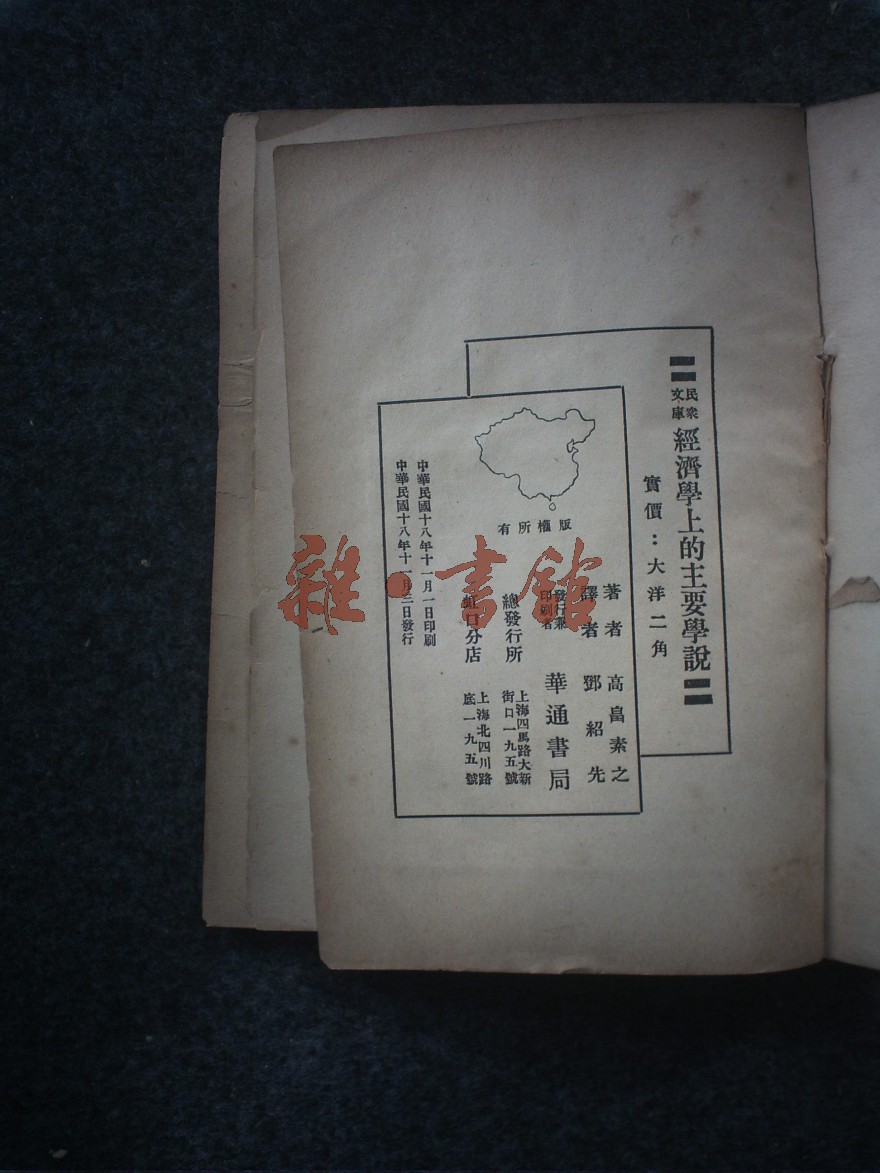 民衆文庫
經濟學上的主要學說
實價：大洋二角
著者　高畠素之
譯者　鄧紹先
發行兼印刷者　華通書局
總發行所　上海四馬路大新街口一九五號
虹口分店　上海北四川路底一九五號
版權所有
中華民國十八年十一月一日印刷
中華民國十八年十一月三日發行
雜·書館